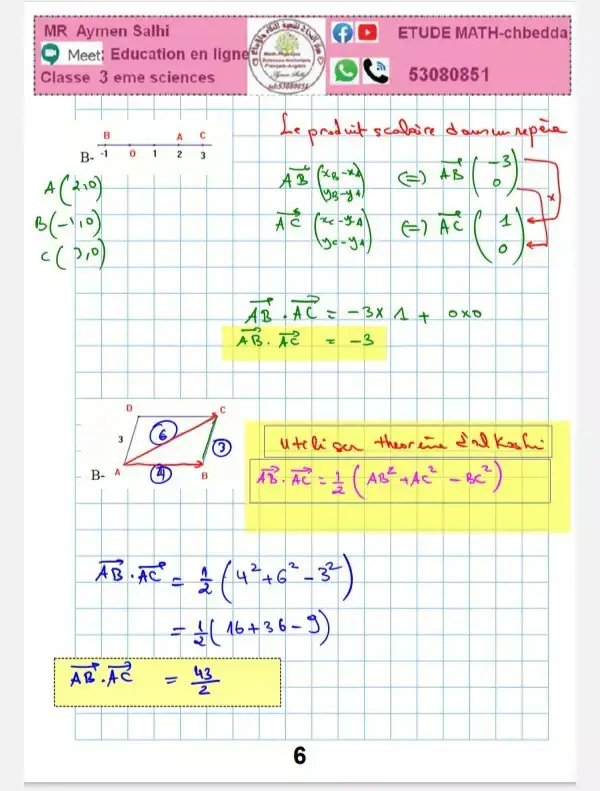 MR Aymen Salhi
Meet: Education en ligne
Classe 3 eme sciences
ETUDE MATH-chbedda
53080851
Le produit scalaire dans un repère
B A C
B- -1 0 1 2 3
A(2,0)
B(-1,0)
C(3,0)
AB (xB - xA / yB - yA) (=) AB (-3 / 0)
x
AC (xC - yA / yC - yA) (=) AC (1 / 0)
AB . AC = -3 x 1 + 0x0
AB . AC = -3
D C
3 6 3
B- A 4 B
utiliser theoreme d'al Kashi
AB . AC = 1/2 (AB² + AC² - BC²)
AB . AC = 1/2 (4² + 6² - 3²)
= 1/2 (16 + 36 - 9)
AB . AC = 43/2
6